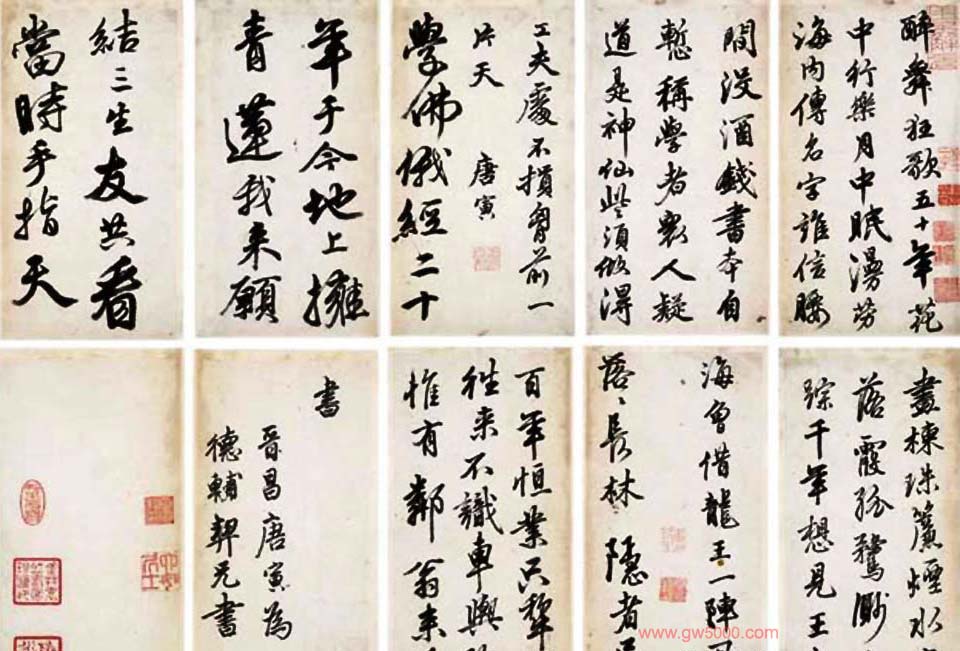 醉舞狂歌五十年花
中行樂月中眠漫勞
海内傳名字誰信腰
間沒酒錢書本自
慙稱學者衆人疑
道是神仙些須做得
工夫處不損胷前一
片天 唐寅
學佛俄經二十
年于今地上擁
青蓮我来願
結三生友共看
當時手指天
畫棟珠簾煙水
落霞孤鶩渺
踪千年想見王
海曾借龍王一陣
落〻長林隱者
百年恒業只犂
徃来不識車輿
惟有鄰翁来
書
晋昌唐寅為
德輔契兄書
www.gw5000.com